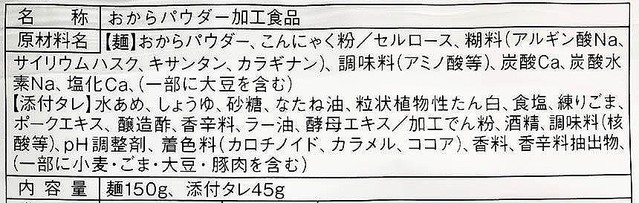 名称 おからパウダー加工食品
原材料名 【麺】おからパウダー、こんにゃく粉／セルロース、糊料(アルギン酸Na、
サイリウムハスク、キサンタン、カラギナン)、調味料(アミノ酸等)、炭酸Ca、炭酸水
素Na、塩化Ca、(一部に大豆を含む)
【添付タレ】水あめ、しょうゆ、砂糖、なたね油、粒状植物性たん白、食塩、練りごま、
ポークエキス、醸造酢、香辛料、ラー油、酵母エキス／加工でん粉、酒精、調味料(核
酸等)、pH調整剤、着色料(カロチノイド、カラメル、ココア)、香料、香辛料抽出物、
(一部に小麦・ごま・大豆・豚肉を含む)
内容量 麺150g、添付タレ45g